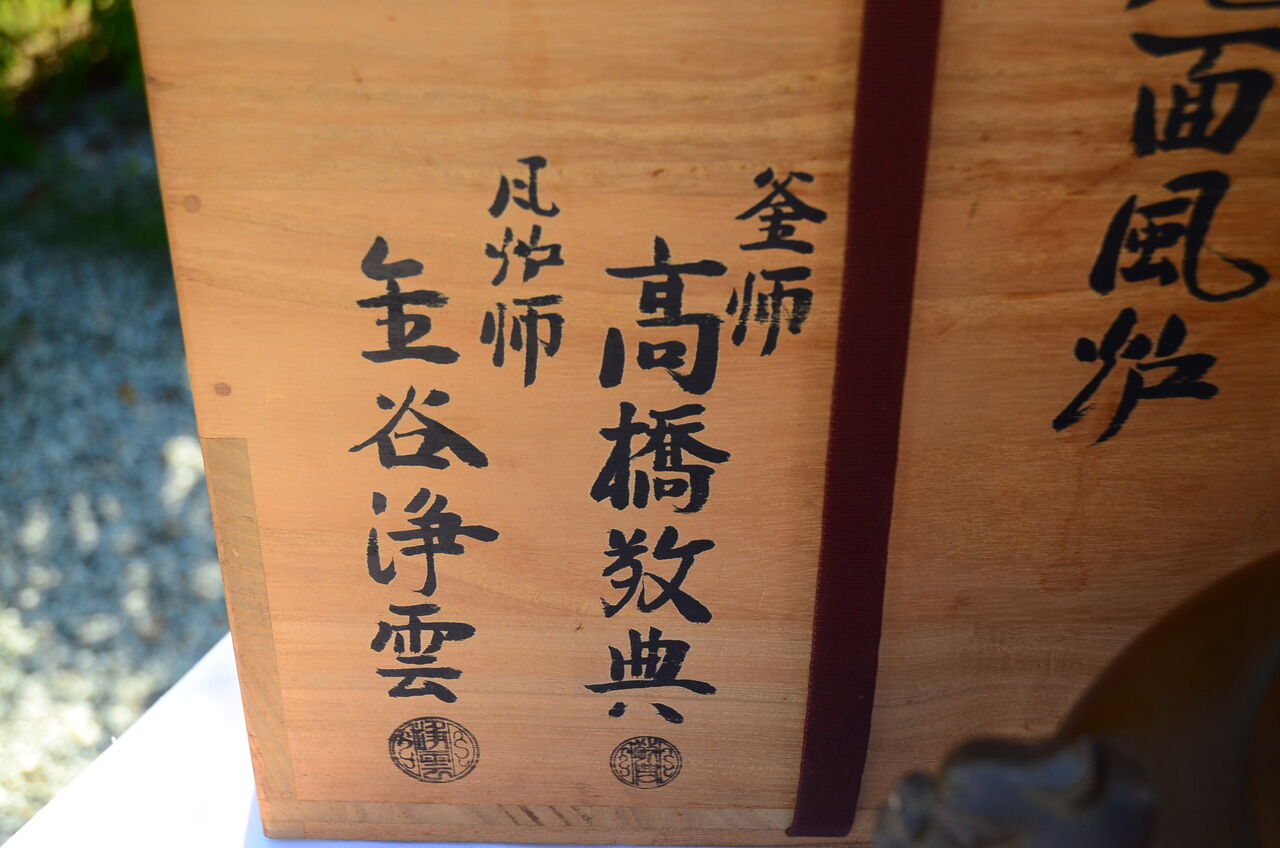 面風炉
釜師
高橋敬典
風炉師
金谷浄雲
浄雲